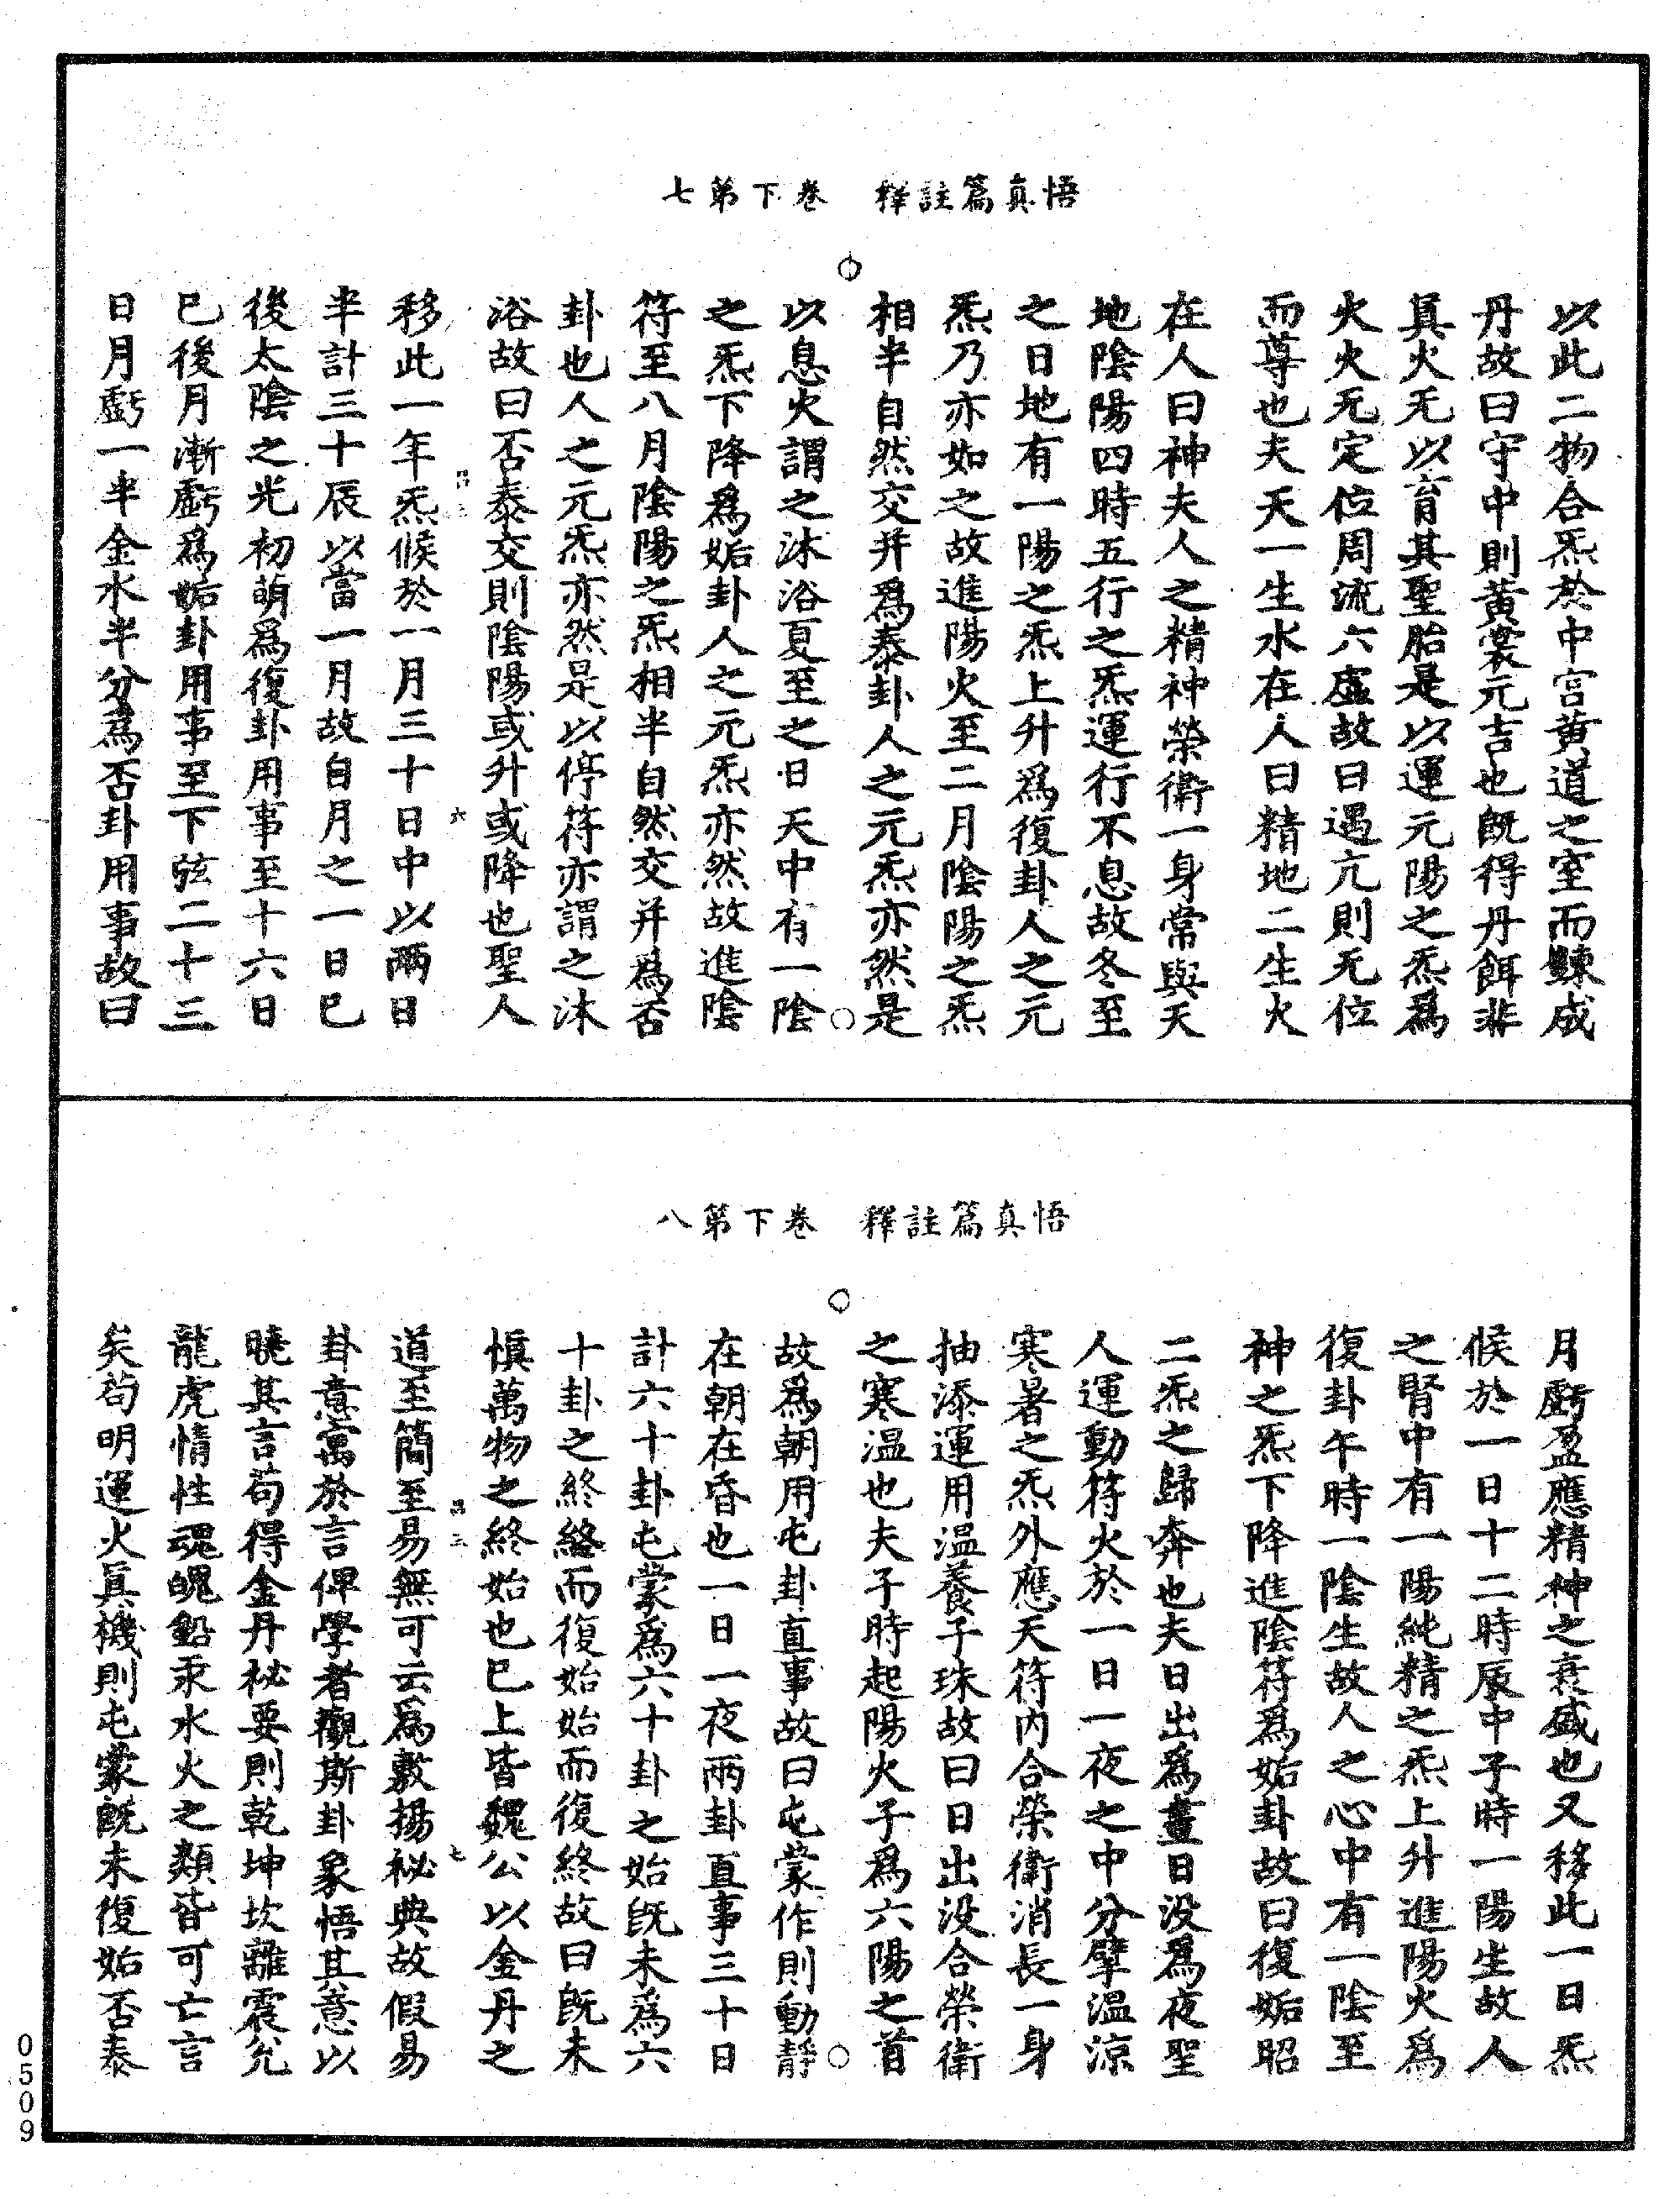 悟真篇註釋　卷下第七
以此二物合炁於中宮黃道之室而鍊成
丹故曰守中則黃裳元吉也旣得丹餌非
真火无以育其聖胎是以運元陽之炁爲
火火无定位周流六虛故曰遇亢則无位
而尊也夫天一生水在人曰精地二生火
在人曰神夫人之精神榮衛一身常與天
地陰陽四時五行之炁運行不息故冬至
之日地有一陽之炁上升爲復卦人之元
炁乃亦如之故進陽火至二月陰陽之炁
相半自然交并爲泰卦人之元炁亦然是
以息火謂之沐浴夏至之日天中有一陰
之炁下降爲姤卦人之元炁亦然故進陰
符至八月陰陽之炁相半自然交并爲否
卦也人之元炁亦然是以停符亦謂之沐
浴故曰否泰交則陰陽或升或降也聖人
六
移此一年炁候於一月三十日中以兩日
半計三十辰以當一月故自月之一日已
後太陰之光初萌爲復卦用事至十六日
已後月漸虧爲姤卦用事至下弦二十三
日月虧一半金水半分爲否卦用事故曰
悟真篇註釋　卷下第八
月虧盈應精神之衰盛也又移此一日炁
候於一日十二時辰中子時一陽生故人
之腎中有一陽純精之炁上升進陽火爲
復卦午時一陰生故人之心中有一陰至
神之炁下降進陰符爲姤卦故曰復姤昭
二炁之歸奔也夫日出爲晝日没爲夜聖
人運動符火於一日一夜之中分擘溫涼
寒暑之炁外應天符内合榮衛消長一身
抽添運用溫養子珠故曰日出没合榮衛
之寒温也夫子時起陽火子爲六陽之首
故爲朝用屯卦直事故曰屯蒙作則動靜
在朝在昏也一日一夜兩卦直事三十日
計六十卦屯蒙爲六十卦之始旣未爲六
十卦之終終而復始始而復終故曰旣未
慎萬物之終始也已上皆魏公以金丹之
七
道至簡至易無可云爲敷揚祕典故假易
卦意寓於言俾學者觀斯卦象悟其意以
曉其言苟得金丹祕要則乾坤坎離震兊
龍虎情性魂魄鉛汞水火之類皆可亡言
矣苟明運火真機則屯蒙旣未復姤否泰
0509